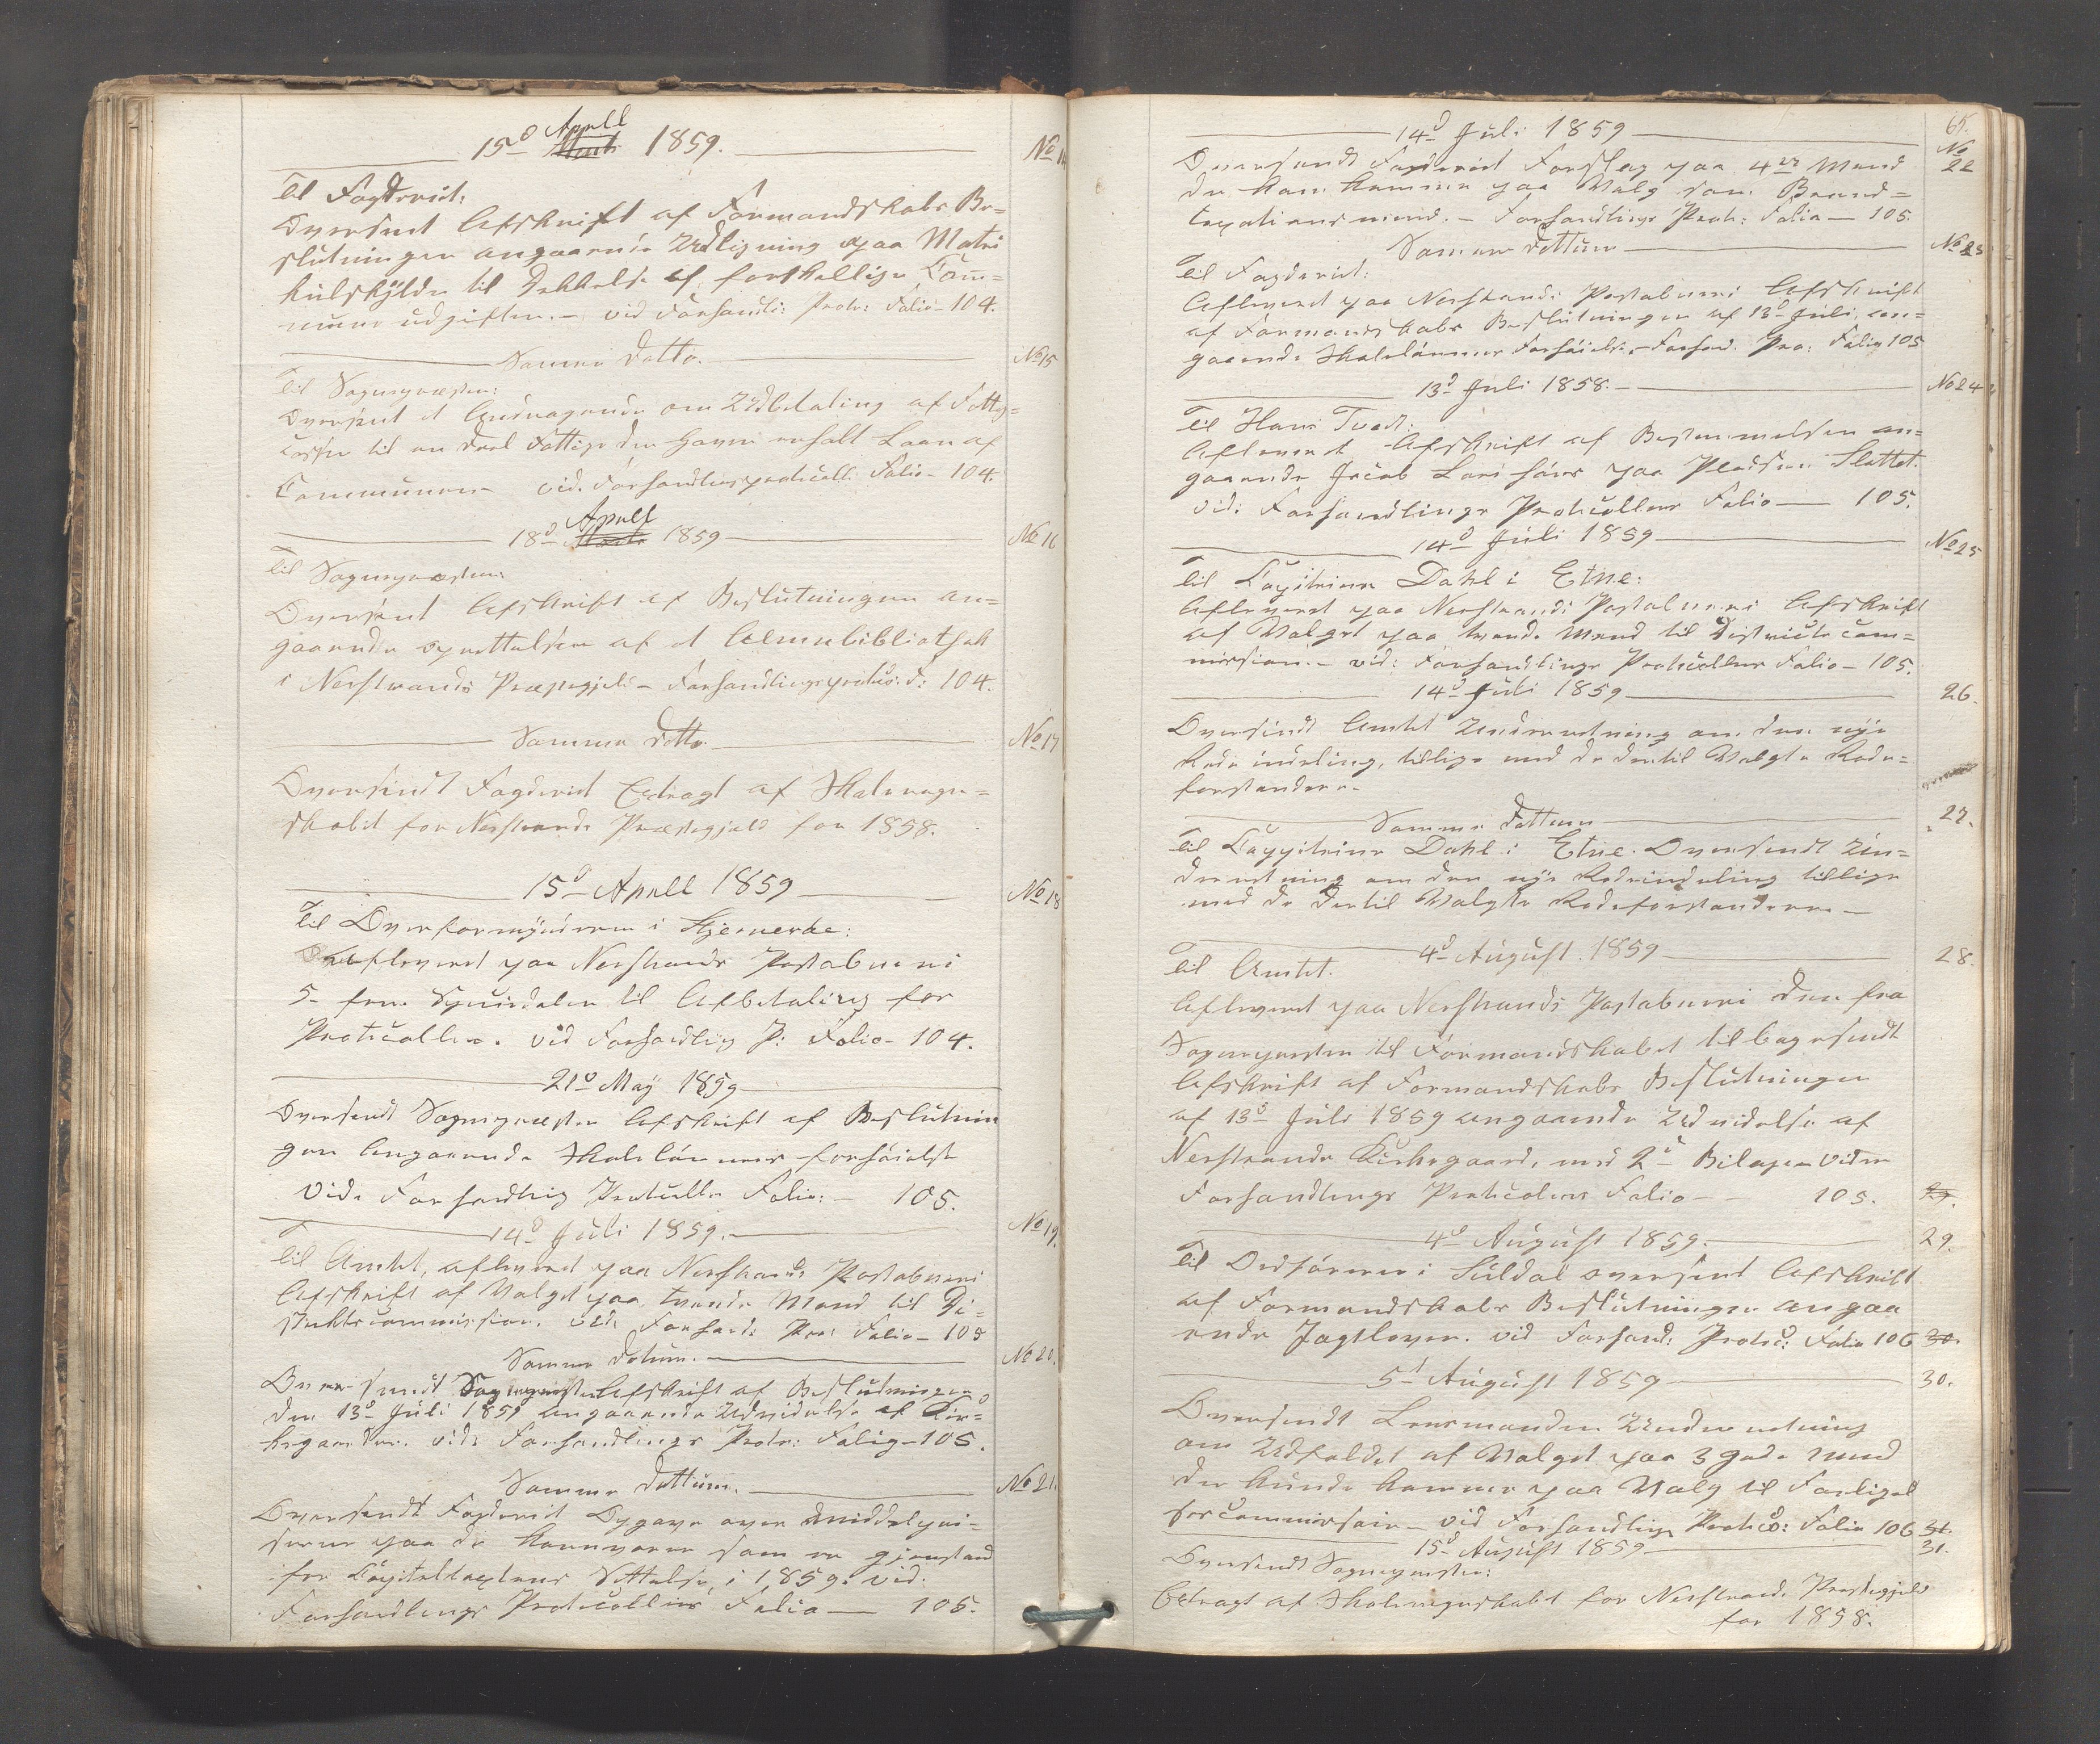 Aprell
15d Marts 1859.
No 14
Til Fogderiet:
Oversent Afskrift af Formandskabs Be=
slutningen angaaende Udligning paa Matri
kulskÿlden til Dekkelse af forskellige Com=
mune udgifter. – vid Forhandli: Proto: Folio – 104.
Samme Datto.
No 15
Til Sognepræsten:
Oversent et Andragende om Udbetaling af Fattig=
Cassen til en Deel Fattige den Havni erholt Laan af
Communen – vid. Forhandlingsprotocoll. Folio – 104.
Aprell
18d Marts 1859
No 16
Til Sognepræsten:
Oversent Afskrift af Beslutningen an=
gaaende oprettelsen af et Almubibliothek
i Nerstrands Præstegjeld – Forhandlingsprotoco: F: 104.
Samme Datto.
No 17
Oversendt Fogderiet Extragt af Skoleregn=
skabet for Nerstrands Præstegjeld for 1858.
15d Aprell 1859
No 18
Til Overformÿnderen i Hjesverke:
Afleveret paa Nerstrands Postaabneri
5 – fem Speciedaler til Afbetaling for
Protocollen. vid Forhandling P: Folio – 104.
21d Maÿ 1859
Oversendt Sognepræsten Afskrift af Beslutnin
gen Angaaende Skolelønnens forhøielse
Vide Forhandling Protocollen Folio: – 105.
14d Juli 1859.
No 19.
Til Amtet, afleveret paa Nerstrands Postabneri
Afskrift af Valget paa tvende Mænd til Di=
striktscommission. vide Forhand: Pro: Folio – 105
Samme Datum.
No 20.
Oversendt Sognepræsten Afskrift af Beslutningen
den 13d Juli 1859 angaaende Udvidelse af Kir=
kegaarden. vide Forhandlings Proto: Folio – 105.
Samme Dattum.
No 21.
Oversendt Fogderiet Opgave over Middelpri=
serne paa de Kornvarer som er gjenstand
for Capitelstaxtens Settelse, i 1859. vid.
Forhandlings Protocollens Folio – 105.
65.
14d Juli 1859
No 22
Oversendt Fogderiet Forslag paa 4re Mend
der kan komme paa Valg som Brand=
taxationsmend. – Forhandlings Proto: Folio – 105.
Samme Dattum
No 23
Til Fogderiet:
Afleveret paa Nerstrands Postabneri Afskrift
af Formandskabs Beslutningen af 13d Juli, an=
gaaende Skolelønnens Forhøielse. – Forhand. Pro: Folio 105
13d Juli 1858. –
No 24
Til Hans Tvedt:
Afleveret Afskrift af Bestemmelsen an=
gaaende Jacob Larshøns paa Pladsen Slettet.
vid: Forhandlings Protocollens Folio – 105.
14d Juli 1859
No 25
Til Capiteinn Dahl i Etne:
Afleveret paa Nerstrands Postabneri Afskrift
af Valget paa tvende Mænd til Districtscom=
mission. – vid: Forhandlings Protocollens Folio – 105.
14d Juli 1859
26.
Oversendt Amtet Underretning om den nÿe
Rode indeling, tillige med de dertil Valgte Rode=
forstandere.
Samme Dattum
27.
Til Cappiteinn Dahl i Etne. Oversendt Un=
derretning om den nÿe Rodeindeling tillige
med de Dertil Valgte Rodeforstandere –
4d August 1859
28.
Til Amtet.
Afleveret paa Nerstrands Postabneri Den fra
Sognepresten til Formandskabet tilbagesendt
Afskrift af Formandskabs Beslutningen
af 13d Juli 1859 angaaende Udvidelse af
Nerstrands Kirkegaard, med 2d Bilager Vide
Forhandlings Protocolens Folio – – 105.
29.
4d August 1859.
29.
Til Ordføreren i Suldal oversent Afskrift
af Formandskabs Beslutningen angaa
ende Jagtloven. vid Forhand: Protoc: Folio 106
30.
5d August 1859
30.
Oversendt Lensmanden Underretning
om Udfaldet af Valget paa 3 Gode Mend
der kunde komme paa Valg til Forligel
sescommissair – vid Forhandlings Protoco: Folio 106
31.
15d August 1859
31.
Oversendt Sognepresten:
Extragt af Skoleregnskabet for Nerstrands Prestegjeld
for 1858.